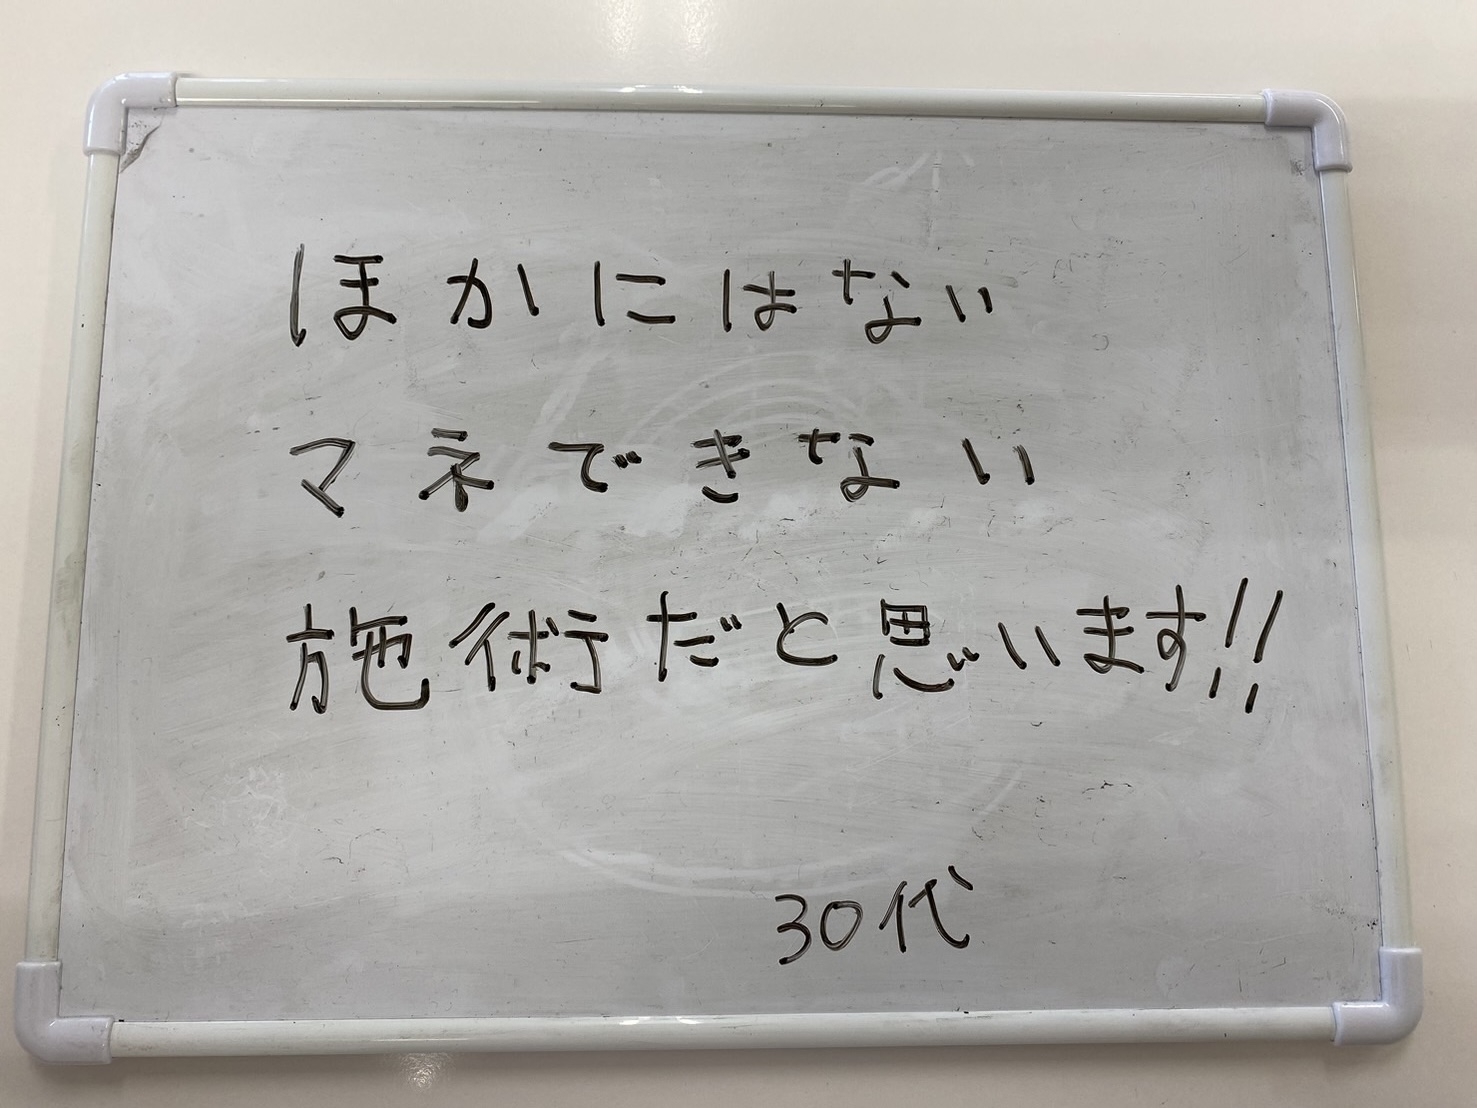 ほかにはない
マネできない
施術だと思います!!
30代